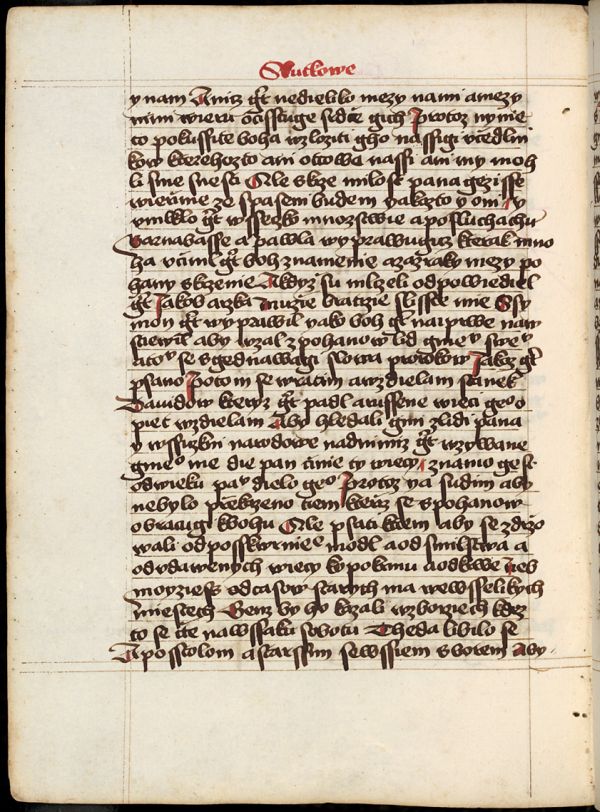 Skutkowe
y nam A nitz gt nedielilo mezy nami a mezy
nimi wieru očisstuge srdce gich Protoz nynie
to pokussite boha wzloziti gho na ssigi včedlni
kow kterehozto ani otcowe nassi ani my moh
li sme snesti Ale skrze milost pana gezisse
wierime ze spaseni budem yakozto y oni A
vmlklo gt wssecko mnozstwie a posluchachu
Barnabasse a pawla wyprawugicz kterak mno
ha včinil gt boh znamenie a zazraky mezy po
hany skrzenie A kdyz su mlceli odpowiediel
gt Jakob arzka Muzie bratrzie slisste mie Ssy
mon gt wyprawil yako boh gt naiprwe naw
stiewil aby wzal z pohanow lid gmenu swe
A tomu se sgednawagi slowa prorokow Jakoz gt
psano Potom se wratim a wzdielam stanek
Dauidow kteryz gt padl a zrussene wieci geo o
piet wzdielam Aby hledali gini z lidi pana
y wssiczkni narodowe nad nimiz gt wzywane
gmeo me die pan činie ty wiecy znamo gest
od wieku panu dielo geo Protoz ya sudim aby
nebylo prekazeno tiem kteriz se z pohanow
obracugi k bohu Ale psati k tiem aby se zdrzo
wali od posskwrnienie modl a od smilstwa a
od vdawenych wiecy ko pokrmu a od krwe Neb
moyziess od casow starych ma we wsselikych
miestech Genz by ho kazali w zborziech kdez
to se čte na wssaku sobotu Theda libilo se
Aposstolom a starssim se wssiem sborem Aby